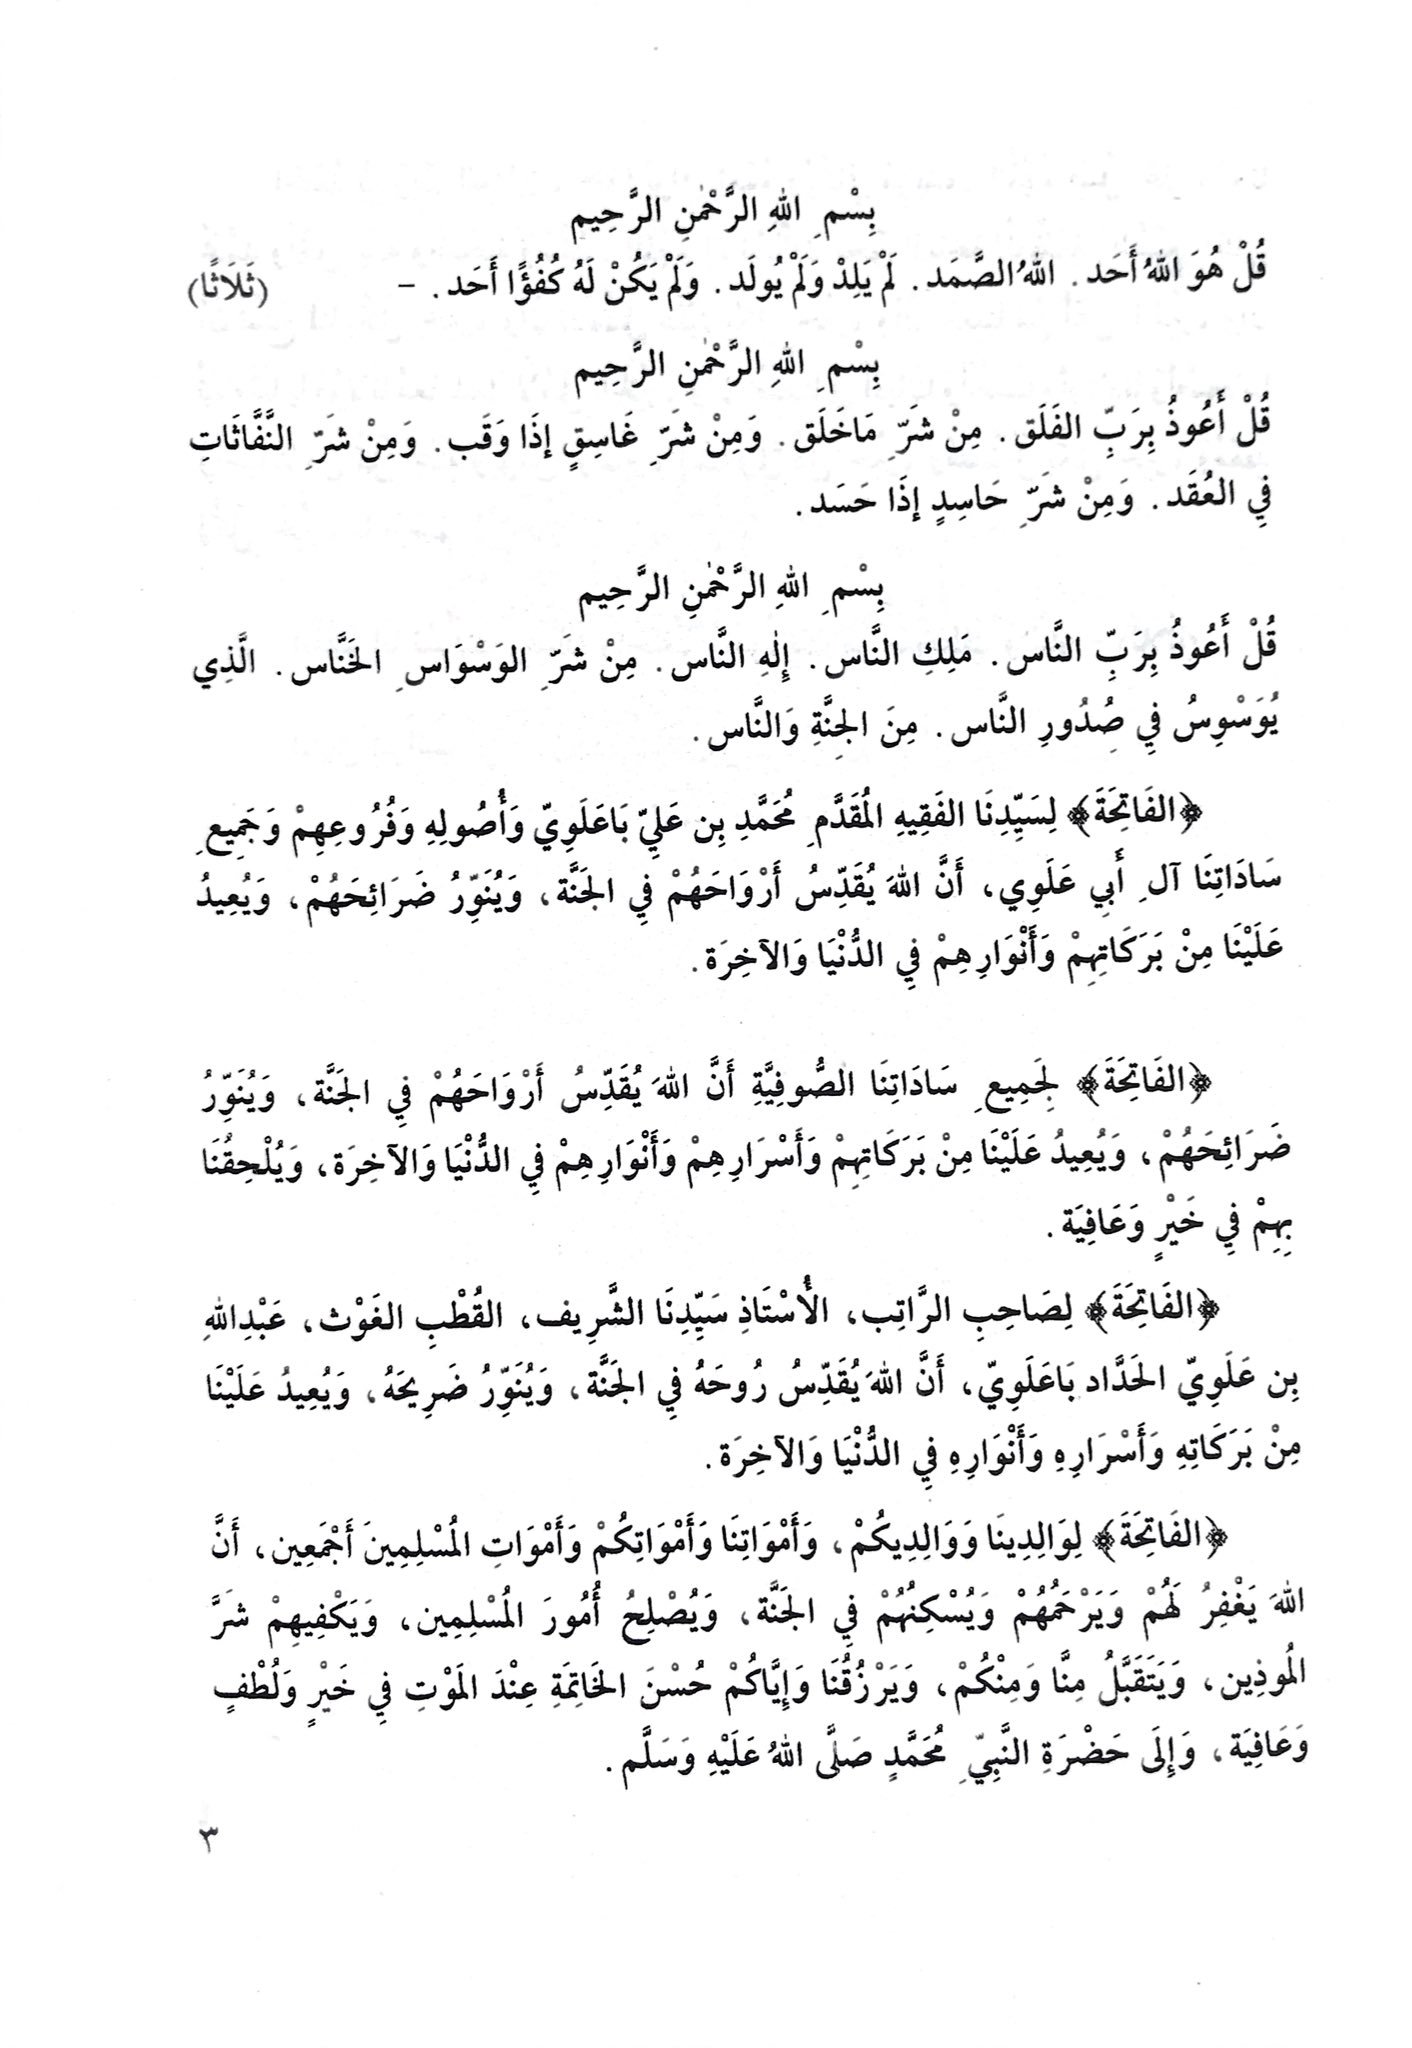 بِسْمِ اللهِ الرَّحْمٰنِ الرَّحِيم
قُلْ هُوَ اللهُ أَحَد. اللهُ الصَّمَد. لَمْ يَلِدْ وَلَمْ يُولَد. وَلَمْ يَكُنْ لَهُ كُفُؤًا أَحَد. - (ثَلَاثًا)
بِسْمِ اللهِ الرَّحْمٰنِ الرَّحِيم
قُلْ أَعُوذُ بِرَبِّ الفَلَق. مِنْ شَرِّ مَاخَلَق. وَمِنْ شَرِّ غَاسِقٍ إذَا وَقَب. وَمِنْ شَرِّ النَّفَّاثَاتِ
فِي العُقَد. وَمِنْ شَرِّ حَاسِدٍ إذَا حَسَد.
بِسْمِ اللهِ الرَّحْمٰنِ الرَّحِيم
قُلْ أَعُوذُ بِرَبِّ النَّاس. مَلِكِ النَّاس. إِلٰهِ النَّاس. مِنْ شَرِّ الوَسْوَاسِ الخَنَّاس. الَّذِي
يُوَسْوِسُ فِي صُدُورِ النَّاس. مِنَ الجِنَّةِ وَالنَّاس.
﴿الفَاتِحَةَ﴾ لِسَيِّدِنَا الفَقِيهِ المُقَدَّمِ مُحَمَّدِ بِن عَلِيّ بَاعَلَوِيّ وَأُصُولِهِ وَفُرُوعِهِمْ وَجَمِيعِ
سَادَاتِنَا آلِ أَبِي عَلَوِي، أَنَّ اللهَ يُقَدِّسُ أَرْوَاحَهُمْ فِي الجَنَّة، وَيُنَوِّرُ ضَرَائِحَهُمْ، وَيُعِيدُ
عَلَيْنَا مِنْ بَرَكَاتِهِمْ وَأَنْوَارِهِمْ فِي الدُّنْيَا وَالآخِرَة.
﴿الفَاتِحَةَ﴾ لِجَمِيعِ سَادَاتِنَا الصُّوفِيَّةِ أَنَّ اللهَ يُقَدِّسُ أَرْوَاحَهُمْ فِي الجَنَّة، وَيُنَوِّرُ
ضَرَائِحَهُمْ، وَيُعِيدُ عَلَيْنَا مِنْ بَرَكَاتِهِمْ وَأَسْرَارِهِمْ وَأَنْوَارِهِمْ فِي الدُّنْيَا وَالآخِرَة، وَيُلْحِقُنَا
بِهِمْ فِي خَيْرٍ وَعَافِيَة.
﴿الفَاتِحَةَ﴾ لِصَاحِبِ الرَّاتِب، الأُسْتَاذِ سَيِّدِنَا الشَّرِيف، القُطْبِ الغَوْث، عَبْدِاللهِ
بِن عَلَوِيّ الحَدَّاد بَاعَلَوِيّ، أَنَّ اللهَ يُقَدِّسُ رُوحَهُ فِي الجَنَّة، وَيُنَوِّرُ ضَرِيحَهُ، وَيُعِيدُ عَلَيْنَا
مِنْ بَرَكَاتِهِ وَأَسْرَارِهِ وَأَنْوَارِهِ فِي الدُّنْيَا وَالآخِرَة.
﴿الفَاتِحَةَ﴾ لِوَالِدِينَا وَوَالِدِيكُمْ، وَأَمْوَاتِنَا وَأَمْوَاتِكُمْ وَأَمْوَاتِ المُسْلِمِينَ أَجْمَعِين، أَنَّ
اللهَ يَغْفِرُ لَهُمْ وَيَرْحَمُهُمْ وَيُسْكِنُهُمْ فِي الجَنَّة، وَيُصْلِحُ أُمُورَ المُسْلِمِين، وَيَكْفِيهِمْ شَرَّ
المُوذِين، وَيَتَقَبَّلُ مِنَّا وَمِنْكُمْ، وَيَرْزُقُنَا وَإِيَّاكُمْ حُسْنَ الخَاتِمَةِ عِنْدَ المَوْتِ فِي خَيْرٍ وَلُطْفٍ
وَعَافِيَة، وَإِلَى حَضْرَةِ النَّبِيِّ مُحَمَّدٍ صَلَّى اللهُ عَلَيْهِ وَسَلَّم.
٣